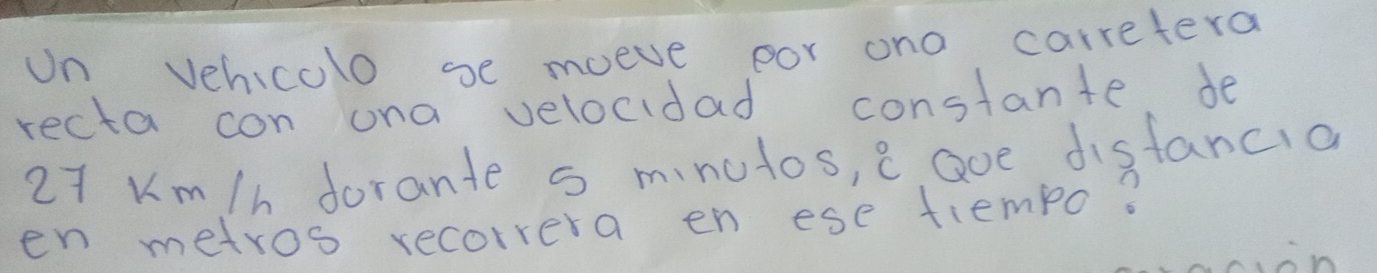 Un vehiculo se mueve por una carretera
recta con una velocidad constante de
27 Km/h durante 5 minutos, ¿ Que distancia
en metros recorrera en ese tiempo?